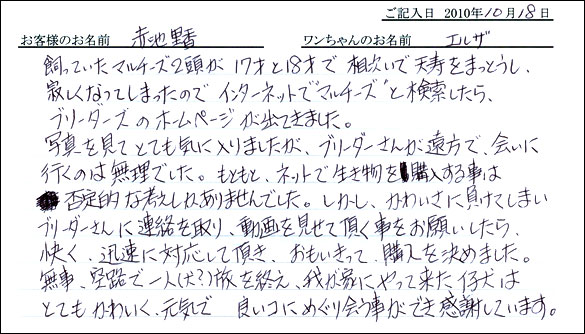 ご記入日 2010年10月18日
お客様のお名前 赤池里香 ワンちゃんのお名前 エルザ
飼っていたマルチーズ2頭が17才と18才で相次いで天寿をまっとうし、
寂しくなってしまったのでインターネットで"マルチーズ"と検索したら、
ブリーダーズのホームページが出てきました。
写真を見てとても気に入りましたが、ブリーダーさんが遠方で、会いに
行くのは無理でした。もともと、ネットで生き物を購入する事は
否定的な考えしかありませんでした。しかし、かわいさに負けてしまい
ブリーダーさんに連絡を取り、動画を見せて頂く事をお願いしたら、
快く、迅速に対応して頂き、おもいきって、購入を決めました。
無事、空路で一人(犬?)旅を終え、我が家にやって来た仔犬は
とてもかわいく、元気で 良いコにめぐり会う事ができ感謝しています。